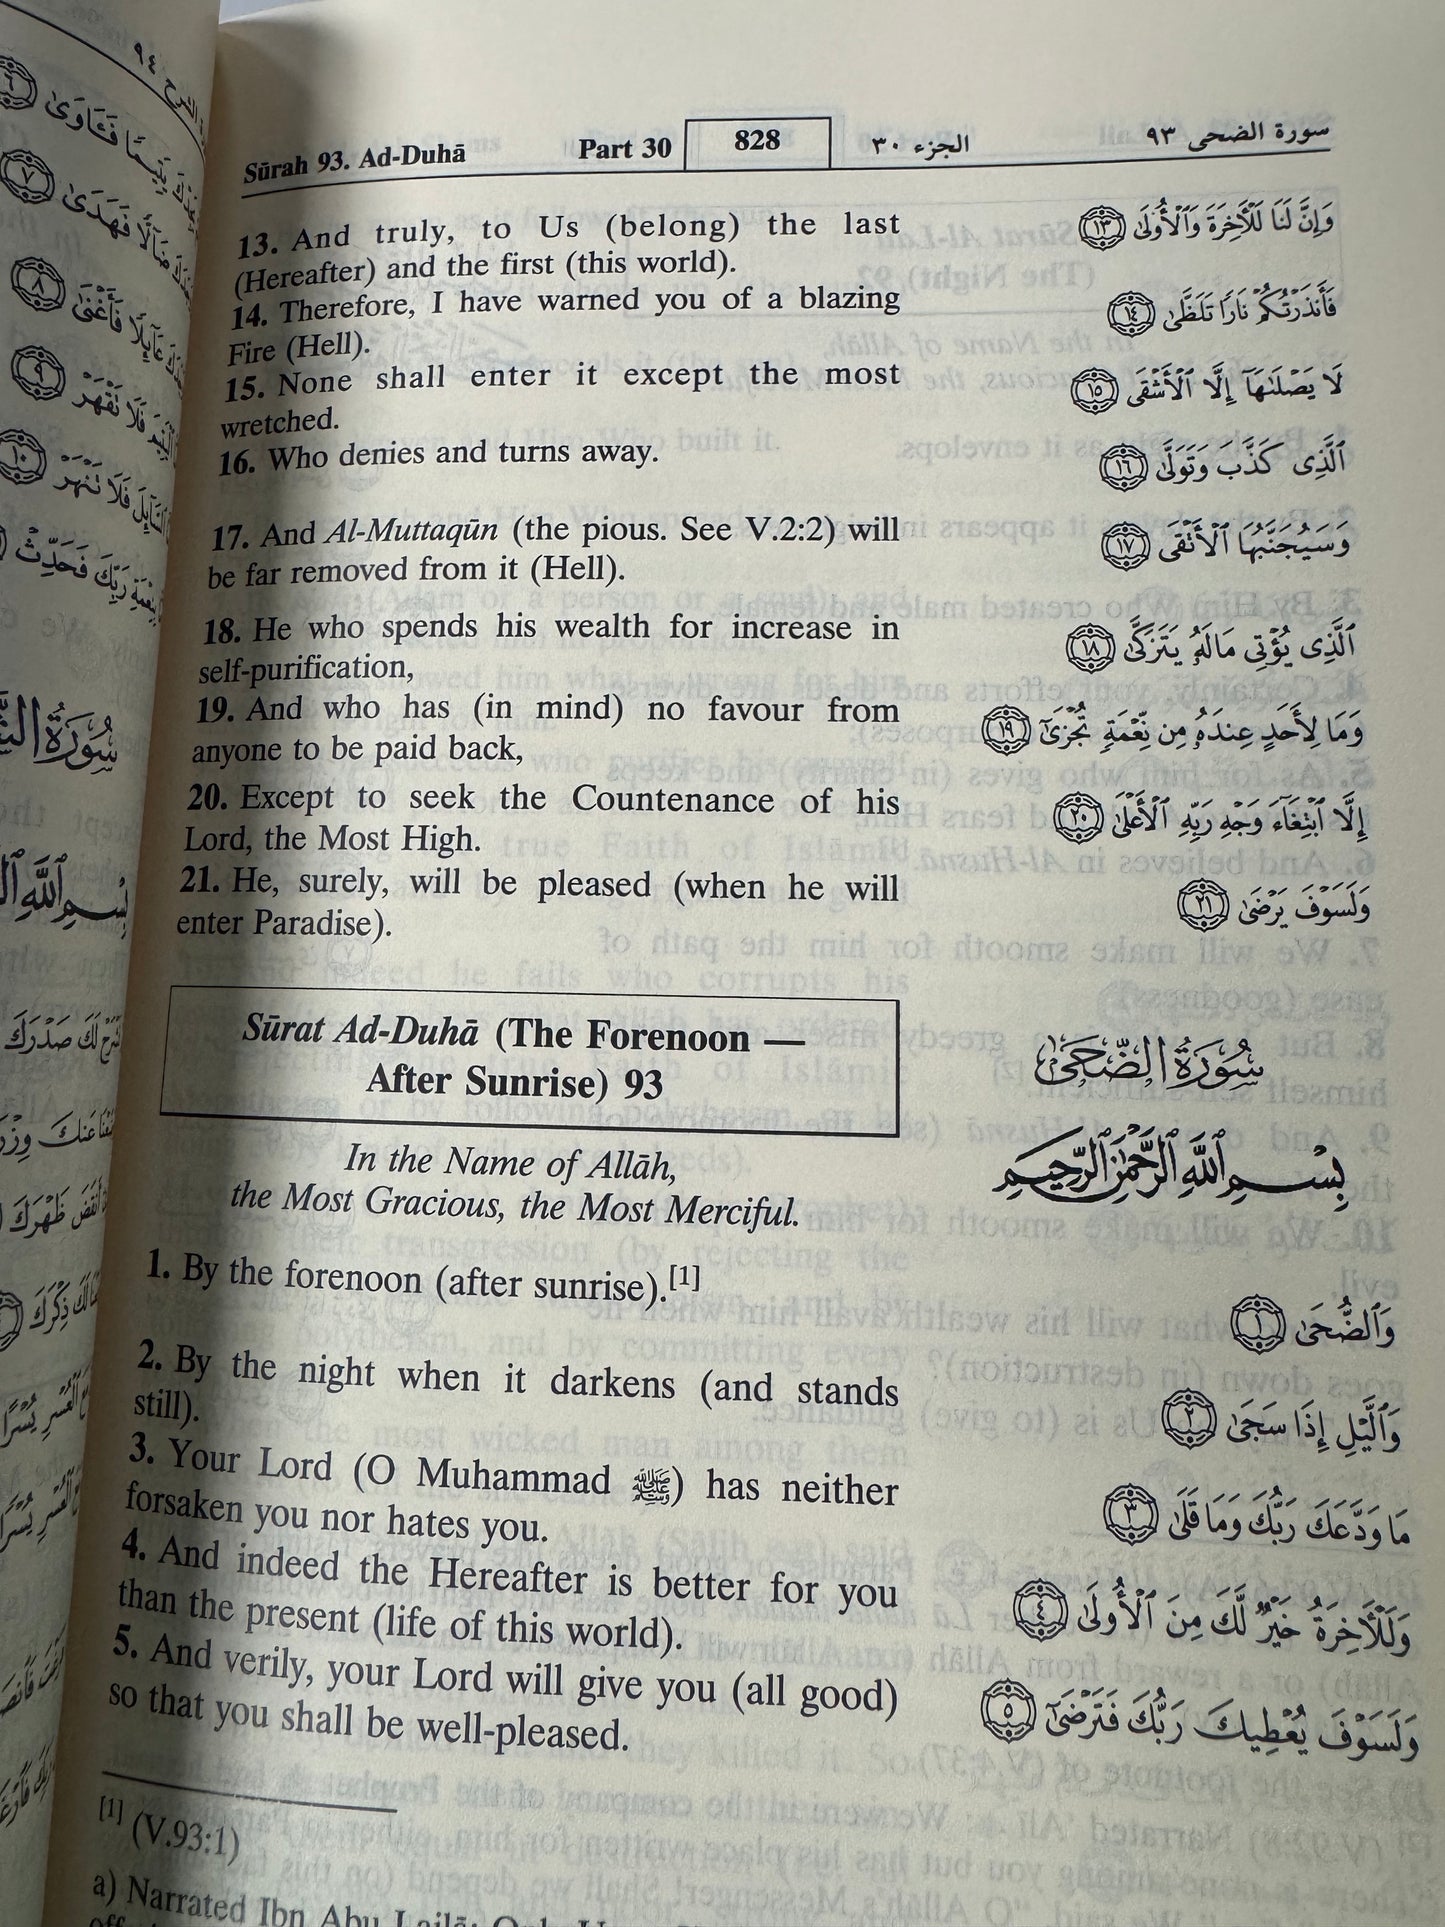 Sūrah 93. Ad-Duhā Part 30 828 الجزء ٣٠ سورة الضحى ٩٣
13. And truly, to Us (belong) the last
(Hereafter) and the first (this world).
وَإِنَّ لَنَا لَلْآخِرَةَ وَٱلْأُولَىٰ ١٣
14. Therefore, I have warned you of a blazing
Fire (Hell).
فَأَنذَرْتُكُمْ نَارًا تَلَظَّىٰ ١٤
15. None shall enter it except the most
wretched.
لَا يَصْلَىٰهَآ إِلَّا ٱلْأَشْقَى ١٥
16. Who denies and turns away.
ٱلَّذِى كَذَّبَ وَتَوَلَّىٰ ١٦
17. And Al-Muttaqūn (the pious. See V.2:2) will
be far removed from it (Hell).
وَسَيُجَنَّبُهَا ٱلْأَتْقَى ١٧
18. He who spends his wealth for increase in
self-purification,
ٱلَّذِى يُؤْتِى مَالَهُۥ يَتَزَكَّىٰ ١٨
19. And who has (in mind) no favour from
anyone to be paid back,
وَمَا لِأَحَدٍ عِندَهُۥ مِن نِّعْمَةٍ تُجْزَىٰٓ ١٩
20. Except to seek the Countenance of his
Lord, the Most High.
إِلَّا ٱبْتِغَآءَ وَجْهِ رَبِّهِ ٱلْأَعْلَىٰ ٢٠
21. He, surely, will be pleased (when he will
enter Paradise).
وَلَسَوْفَ يَرْضَىٰ ٢١
Sūrat Ad-Duhā (The Forenoon —
After Sunrise) 93
سُورَةُ الضُّحَىٰ
In the Name of Allāh,
the Most Gracious, the Most Merciful.
بِسْمِ ٱللَّهِ ٱلرَّحْمَٰنِ ٱلرَّحِيمِ
1. By the forenoon (after sunrise).[1]
وَٱلضُّحَىٰ ١
2. By the night when it darkens (and stands
still).
وَٱلَّيْلِ إِذَا سَجَىٰ ٢
3. Your Lord (O Muhammad ﷺ) has neither
forsaken you nor hates you.
مَا وَدَّعَكَ رَبُّكَ وَمَا قَلَىٰ ٣
4. And indeed the Hereafter is better for you
than the present (life of this world).
وَلَلْآخِرَةُ خَيْرٌ لَّكَ مِنَ ٱلْأُولَىٰ ٤
5. And verily, your Lord will give you (all good)
so that you shall be well-pleased.
وَلَسَوْفَ يُعْطِيكَ رَبُّكَ فَتَرْضَىٰٓ ٥
[1] (V.93:1)
a) Narrated Ibn Abu Lailā: